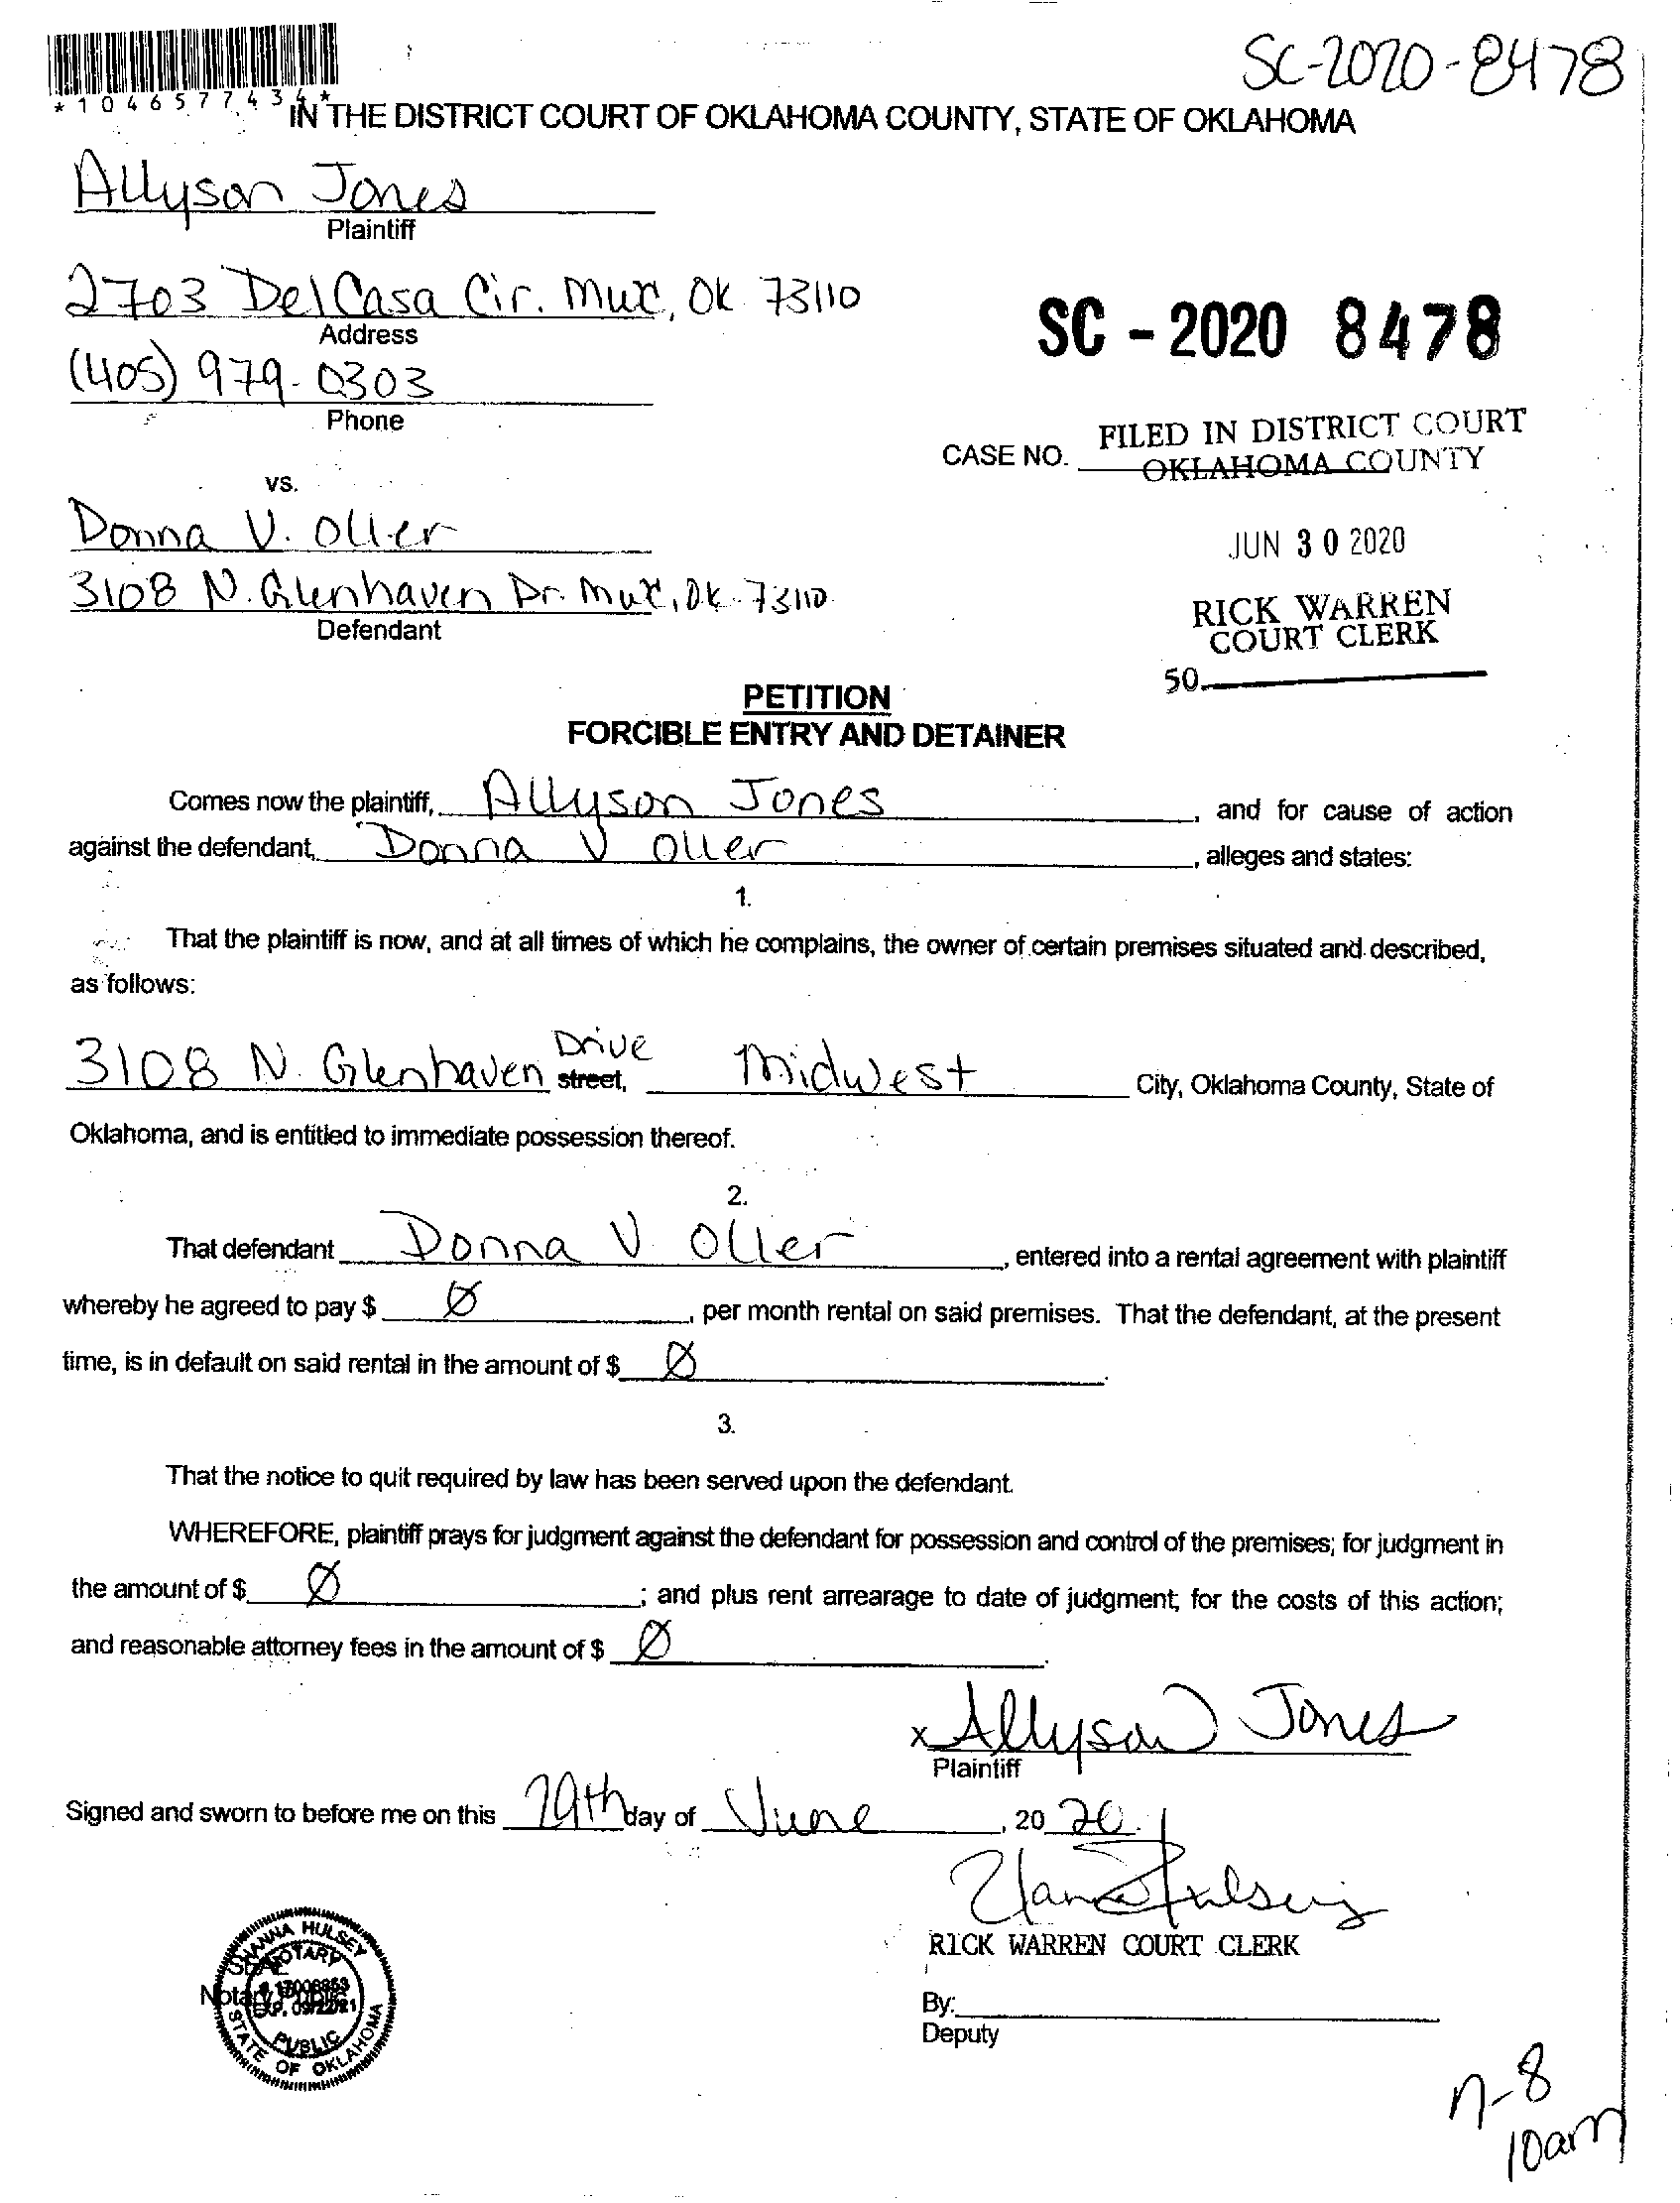 SC-2020-8478
*1046577434*
IN THE DISTRICT COURT OF OKLAHOMA COUNTY, STATE OF OKLAHOMA
Allyson Jones
Plaintiff
2703 Del Casa Cir. MWC, OK 73110
Address
(405) 979-0303
Phone
SC - 2020 8478
CASE NO. FILED IN DISTRICT COURT
OKLAHOMA COUNTY
vs.
Donna V. Oller
3108 N. Glenhaven Dr. MWC, OK 73110
Defendant
JUN 30 2020
RICK WARREN
COURT CLERK
50.
PETITION
FORCIBLE ENTRY AND DETAINER
Comes now the plaintiff, Allyson Jones, and for cause of action
against the defendant, Donna V Oller, alleges and states:
1.
That the plaintiff is now, and at all times of which he complains, the owner of certain premises situated and described,
as follows:
3108 N. Glenhaven Drive street, Midwest City, Oklahoma County, State of
Oklahoma, and is entitled to immediate possession thereof.
2.
That defendant Donna V. Oller, entered into a rental agreement with plaintiff
whereby he agreed to pay $ Ø, per month rental on said premises. That the defendant, at the present
time, is in default on said rental in the amount of $ Ø.
3.
That the notice to quit required by law has been served upon the defendant.
WHEREFORE, plaintiff prays for judgment against the defendant for possession and control of the premises; for judgment in
the amount of $ Ø; and plus rent arrearage to date of judgment; for the costs of this action;
and reasonable attorney fees in the amount of $ Ø.
x Allyson Jones
Plaintiff
Signed and sworn to before me on this 29th day of June, 2020.
RICK WARREN COURT CLERK
SHANNA HULSEY
NOTARY
SEAL
Notary Public
# 17008853
EXP. 09/22/21
PUBLIC
STATE OF OKLAHOMA
By:
Deputy
10am